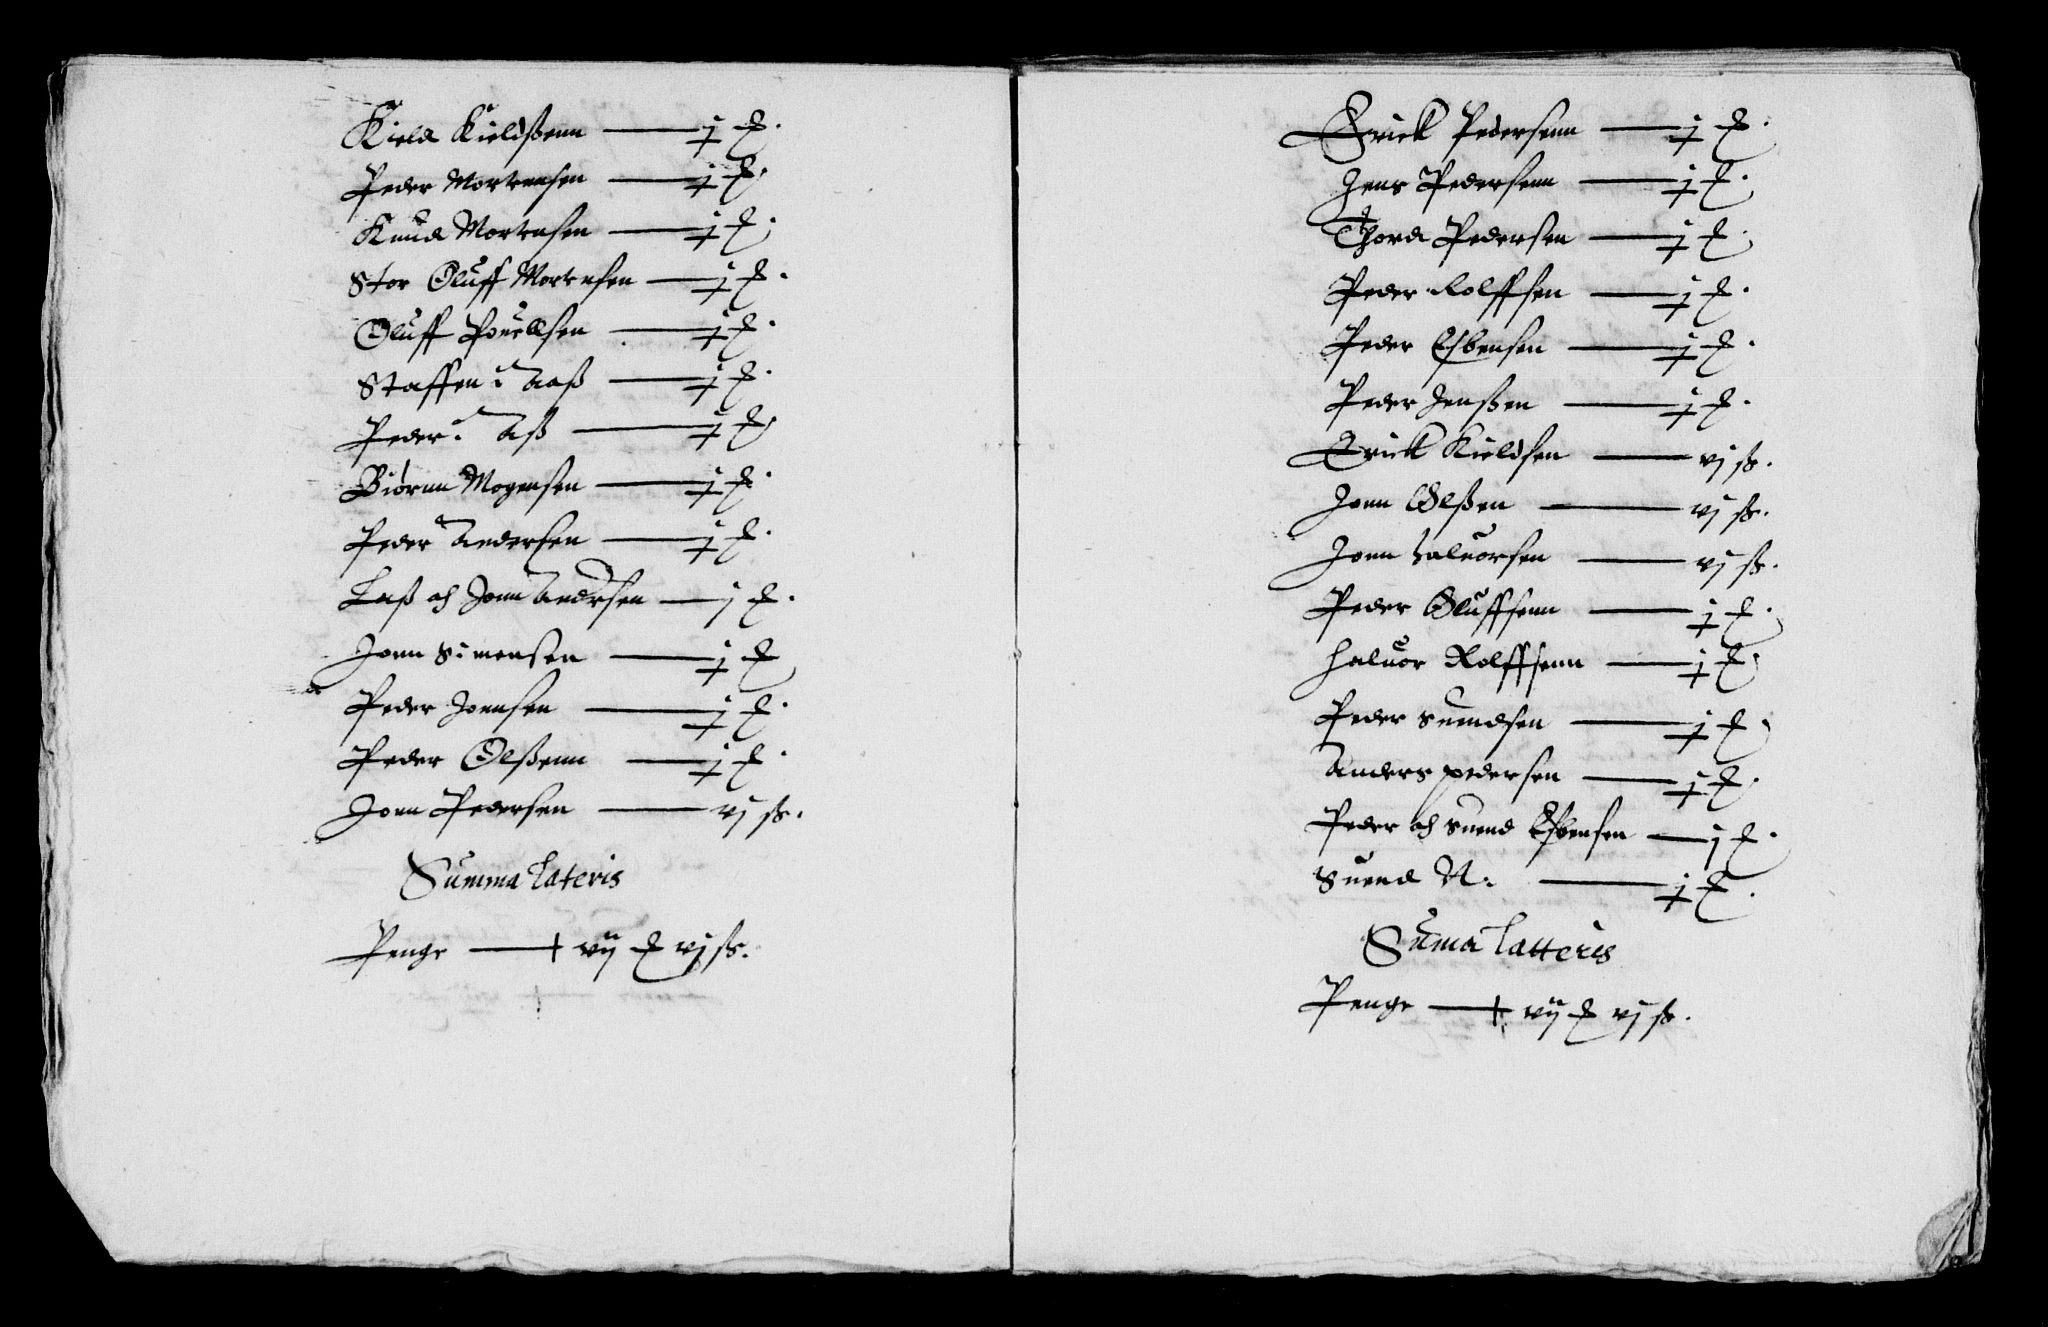 Kield Kieldßenn — j d.
Peder Mortensen — j d.
Knud Mortensen — j d.
Stor Oluff Mortensen — j d.
Oluff Pouellsen — j d.
Staffen i Aaß — j d.
Peder i Aß — j d.
Biørnn Mogensen — j d.
Peder Andersen — j d.
Laß och Jonn Andersen — j d.
Jonn Simensen — j d
Peder Joensen — j d.
Peder Olßenn — j d.
Jonn Pedersen — vj ß.
Summa Lateris
Penge — vij d vj ß.
Erick Pedersenn — j d.
Jens Pedersenn — j d.
Thord Pedersen — j d.
Peder Rolffsen — j d.
Peder Esbensen — j d.
Peder Jenßen — j d.
Erick Kieldsen — vj ß.
Jonn Olßen — vj ß.
Jonn haluorsen — vj ß.
Peder Oluffsenn — j d.
Haluor Rolffsenn — j d.
Peder Suendsen — j d.
Anders pedersen — j d.
Peder och Suend Esbensen — j d.
Suend N: — j d.
Suma Latteris
Penge — vij d vj ß.